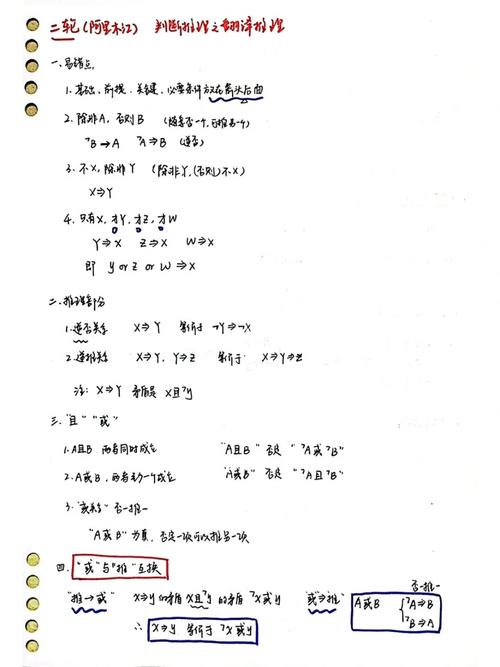 二轮(阿里木江) 判断推理之翻译推理
一、易错点
1. 基础、前提、关键、必要条件放在箭头后面
2. 除非A, 否则B (随意否一个, 可推另一个)
¬B→A ¬A⇒B (逆否)
3. 不X, 除非Y (除非Y,(否则)不X)
X⇒Y
4. 只有X, 才Y, 才Z, 才W
Y⇒X Z⇒X W⇒X
即 Y or Z or W ⇒X
二、推理部分
1. 逆否关系 X⇒Y 等价于 ¬Y⇒¬X
2. 递推关系 X⇒Y, Y⇒Z 等价于 X⇒Y⇒Z
注: X⇒Y 矛盾是 X且¬y
三、"且" "或"
1. A且B 两者同时成立 "A且B" 否定 "¬A或¬B"
2. A或B, 两者至少一个成立 "A或B" 否定 "¬A且¬B"
3. "或关系" 否一推一
"A或B" 为真, 否定一项可以推另一项
四、"或"与"推"互换
否一推一
"推→或" X⇒y 的矛盾 X且¬y 的矛盾 ¬X或y "或⇒推" A或B { ¬A⇒B
¬B⇒A
∴ X⇒y 等价于 ¬X或y